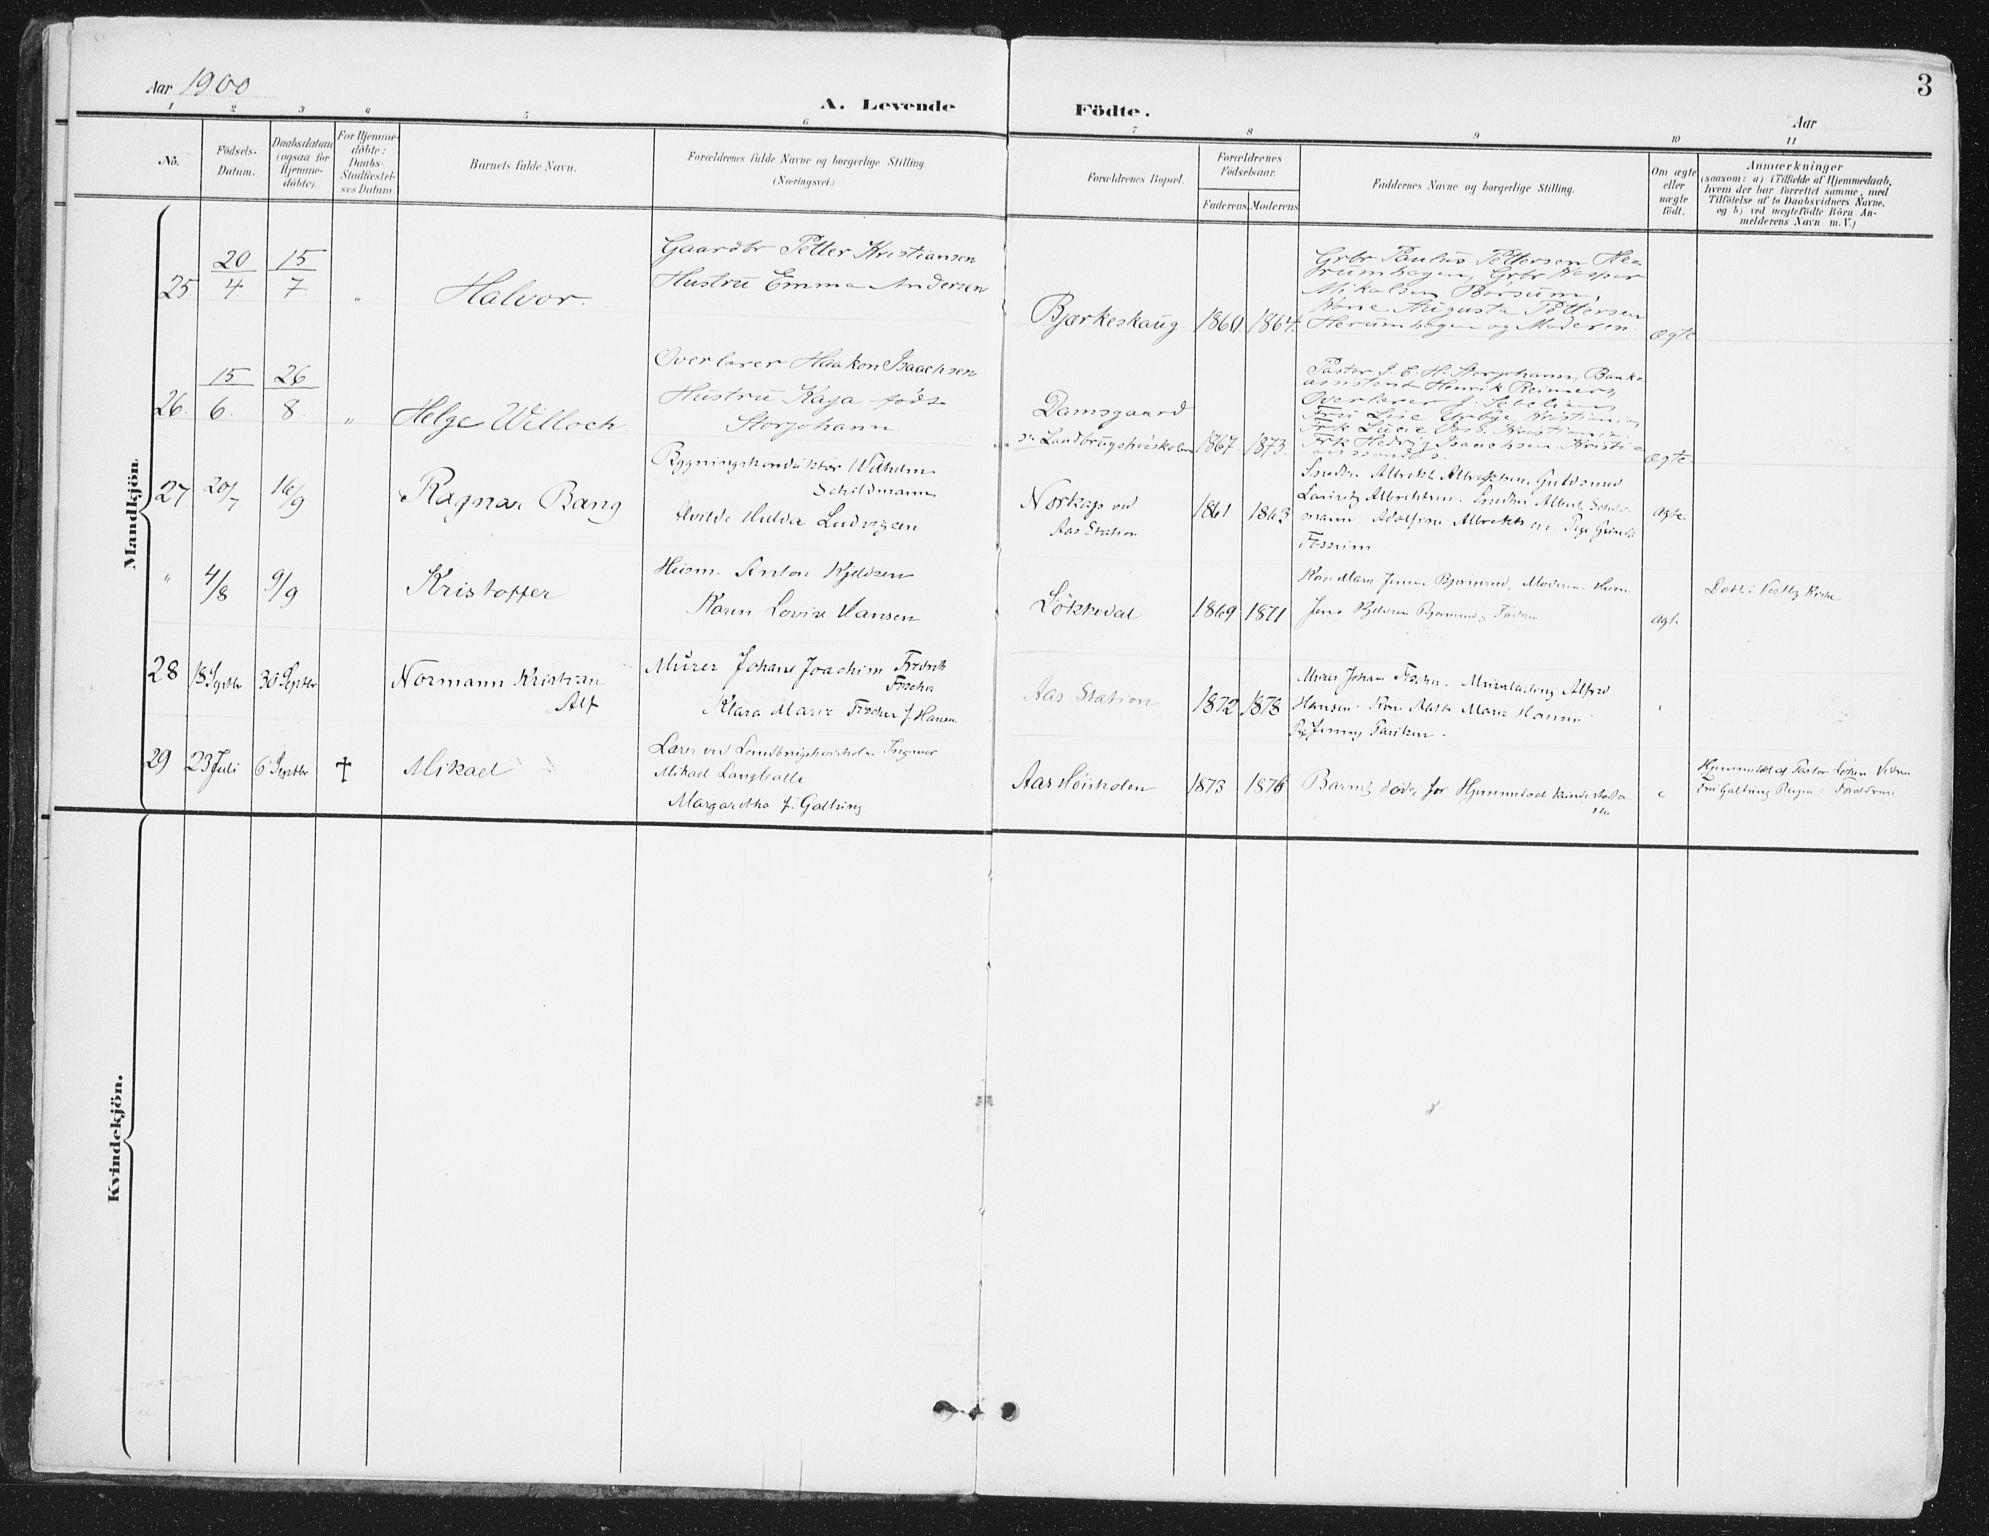 3
Aar 1900
A. Levende Födte.
Aar
1 2 3 4 5 6 7 8 9 10 11
No.
Födsels-
Datum.
Daabsdatum
(ogsaa for
Hjemme-
döbte).
For Hjemme-
döbte:
Daabs-
Stadfæstel-
ses Datum.
Barnets fulde Navn.
Forældrenes fulde Navne og borgerlige Stilling.
(Næringsvei.)
Forældrenes Bopæl.
Forældrenes
Födselsaar.
Faderens. Moderens.
Faddernes Navne og borgerlige Stilling.
Om ægte
eller
uægte
födt.
Anmærkninger
(saasom: a) i Tilfælde af Hjemmedaab,
hvem der har forrettet samme, med
Tilföielse af to Daabsvidners Navne,
og b) ved uægtefödte Börn An-
melderens Navn m. V.)
Mandkjön.
25 20/4 15/7 " Halvor.
Gaardbr Petter Kristiansen
Hustru Emma Andersen
Bjærkeskaug. 1860 1864.
Grbr Paulus Pettersen He-
rumhagen, Grbr Kasper
Mikalsen Borsum,
Pone Augusta Pettersen
Herumhagen og Moderen.
ægte
26. 15/6. 26/8. " Helge Willoch.
Overlærer Haakon Isaachsen
Hustru Kaja födt
Storjohann.
Damsgaard
v. Landbrugshöiskolen 1867. 1873.
Pastor J. C. H. Storjohann, Bank-
assistent Henrik Reimers,
Overlærer J. Sebelien,
Fru Lise Urbye Kristiania,
Frk Lucie Kristiania,
Frk Hedvig Isaachsen Kristi-
anssand.
ægte
27 20/7 16/9 Ragnar Bang
Bygningskonduktör Wilhelm
Schildmann
Hulda Ludvigsen
Norkap ved
Aas Station
1861 1863
Snedker Albrekt Albrektsen. Guldsmed
Lauritz Albrektsen. Snedker Albert Schild-
mann. Adolfine Albrektsen. Pige
Fossum
ægte
" 4/8 9/9 Kristoffer
Husm. Anton Kjeldsen
Karen Lovise Hansen
Lökkedal 1869 1871
Kone Marie Jensen Bjørnerud, Moderen. Husm.
Jens Kjeldsen Bjørnerud, Faderen
ægte
Döbt i Nestby Kirke
28 18 Septbr 30 Septbr Normann Kristian
Alf
Murer Johans Joachim Fredrik
Fischer
Klara Marie Fischer f. Hansen
Aas Station 1872 1878
Murer Johan Fischer. Alfred
Hansen. Marie Hansen
Pige Jenny Paulsen.
29 23 Juli 6 Septbr † Mikael
Lærer ved Landbrugshöiskolen Ingvar
Mikael Langballe
Margaretha f. Galtung
Aas Höiskolen 1873 1876
Barnet döde för Hjemmedaab kunde stadfæ-
stes
Hjemmedöbt af Pastor
Fru Galtung Forældrene
Kvindekjön.